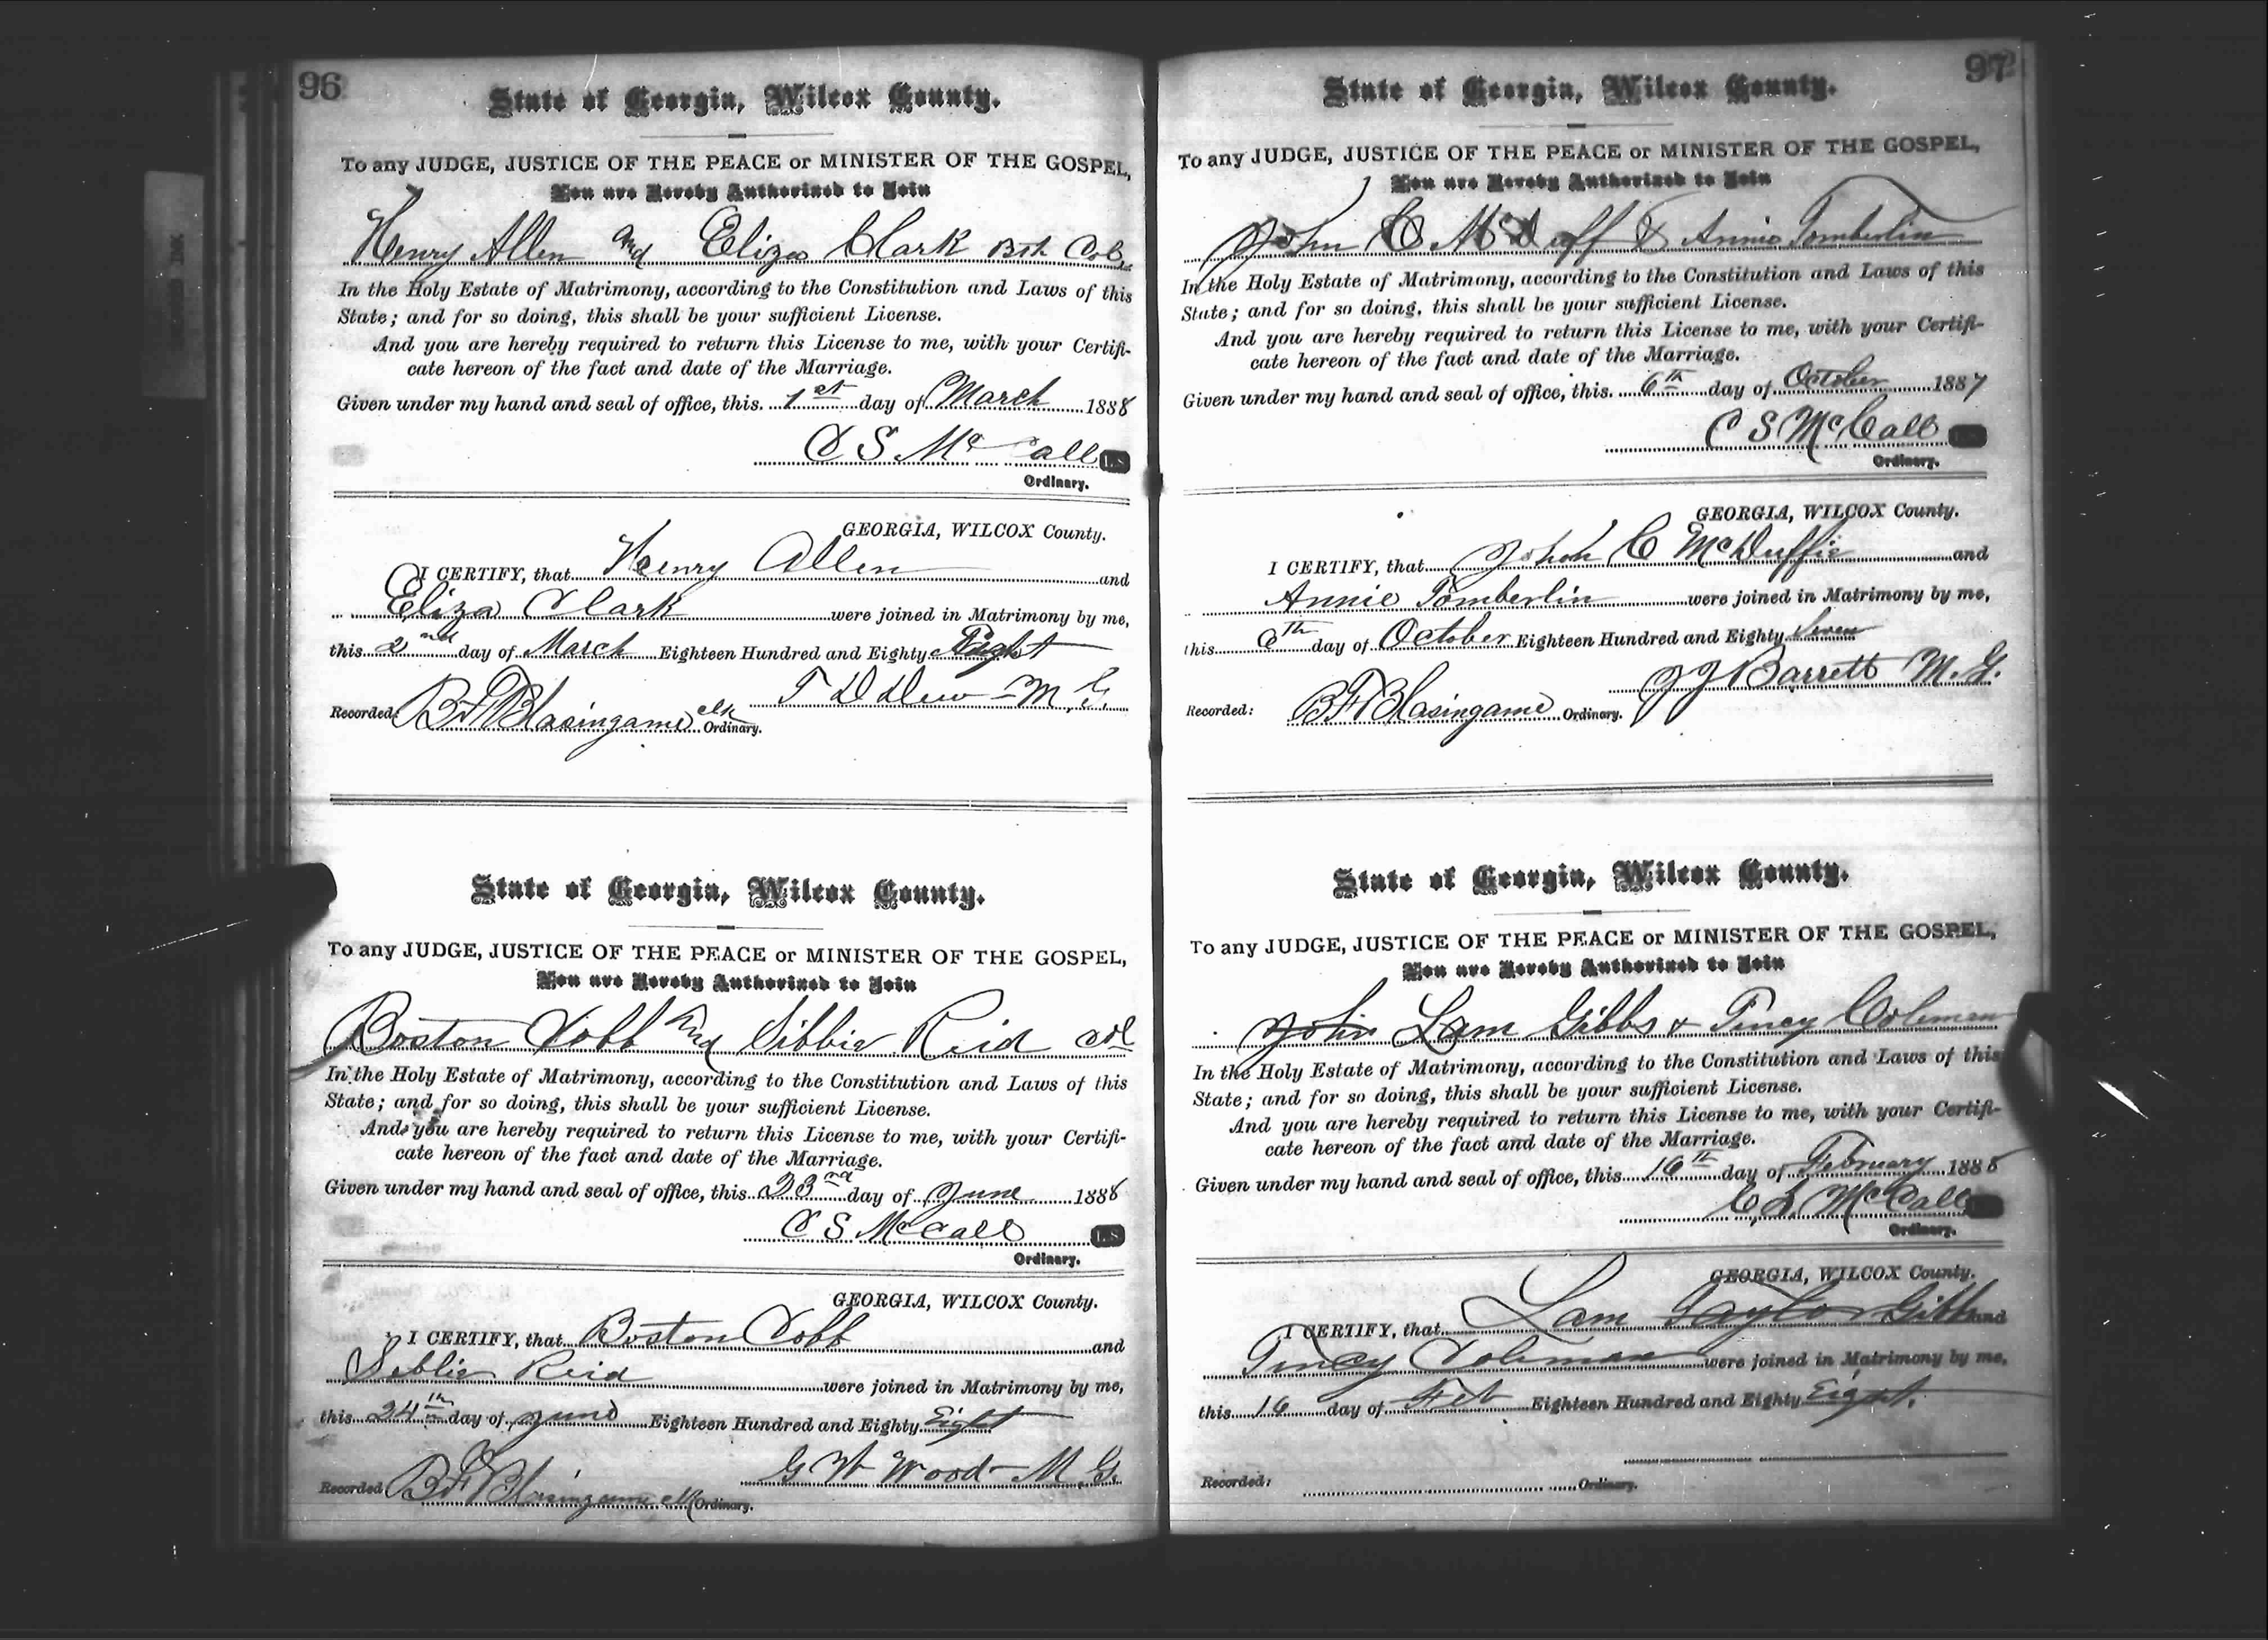 96
State of Georgia, Wilcox County.
To any JUDGE, JUSTICE OF THE PEACE or MINISTER OF THE GOSPEL,
You are Hereby Authorized to Join
Henry Allen and Eliza Clark Bth Col
In the Holy Estate of Matrimony, according to the Constitution and Laws of this
State; and for so doing, this shall be your sufficient License.
And you are hereby required to return this License to me, with your Certifi-
cate hereon of the fact and date of the Marriage.
Given under my hand and seal of office, this 1st day of March 1888
C S McCall L.S
Ordinary.
GEORGIA, WILCOX County.
I CERTIFY, that Henry Allen and
Eliza Clark were joined in Matrimony by me,
this 2nd day of March Eighteen Hundred and Eighty Eight
T D Dew M.G.
Recorded: B F Blasingame clk Ordinary.
State of Georgia, Wilcox County.
To any JUDGE, JUSTICE OF THE PEACE or MINISTER OF THE GOSPEL,
You are Hereby Authorized to Join
Boston Cobb and Sibbie Reid col
In the Holy Estate of Matrimony, according to the Constitution and Laws of this
State; and for so doing, this shall be your sufficient License.
And you are hereby required to return this License to me, with your Certifi-
cate hereon of the fact and date of the Marriage.
Given under my hand and seal of office, this 23rd day of June 1888
C S McCall L.S
Ordinary.
GEORGIA, WILCOX County.
I CERTIFY, that Boston Cobb and
Sibbie Reid were joined in Matrimony by me,
this 24th day of June Eighteen Hundred and Eighty Eight
G W Wood M.G.
Recorded B F Blasingame clk Ordinary.
97
State of Georgia, Wilcox County.
To any JUDGE, JUSTICE OF THE PEACE or MINISTER OF THE GOSPEL,
You are Hereby Authorized to Join
John C McDuff & Annie Tomberlin
In the Holy Estate of Matrimony, according to the Constitution and Laws of this
State; and for so doing, this shall be your sufficient License.
And you are hereby required to return this License to me, with your Certifi-
cate hereon of the fact and date of the Marriage.
Given under my hand and seal of office, this 6th day of October 1887
C S McCall
Ordinary.
GEORGIA, WILCOX County.
I CERTIFY, that John C McDuffie and
Annie Tomberlin were joined in Matrimony by me,
this 6th day of October Eighteen Hundred and Eighty Seven
J J Barrett M.G.
Recorded: B F Blasingame Ordinary.
State of Georgia, Wilcox County.
To any JUDGE, JUSTICE OF THE PEACE or MINISTER OF THE GOSPEL,
You are Hereby Authorized to Join
John Lam Gibbs & Tincy Coleman
In the Holy Estate of Matrimony, according to the Constitution and Laws of this
State; and for so doing, this shall be your sufficient License.
And you are hereby required to return this License to me, with your Certifi-
cate hereon of the fact and date of the Marriage.
Given under my hand and seal of office, this 16th day of February 1888
C. S. McCall
Ordinary.
GEORGIA, WILCOX County.
I CERTIFY, that Lam Taylor Gibbs and
Tincy Coleman were joined in Matrimony by me,
this 16 day of Feb Eighteen Hundred and Eighty Eight.
Recorded: Ordinary.